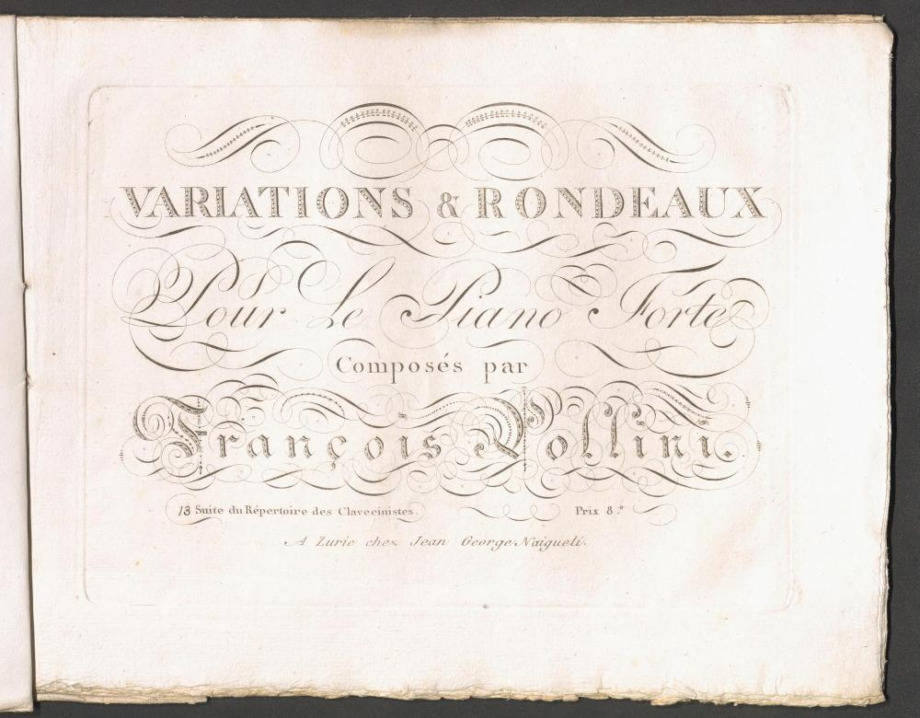 VARIATIONS & RONDEAUX
Pour Le Piano Forte
Composés par
François Pollini.
13 Suite du Répertoire des Clavecinistes.
Prix 8.
A Zuric chez Jean George Naigueli.